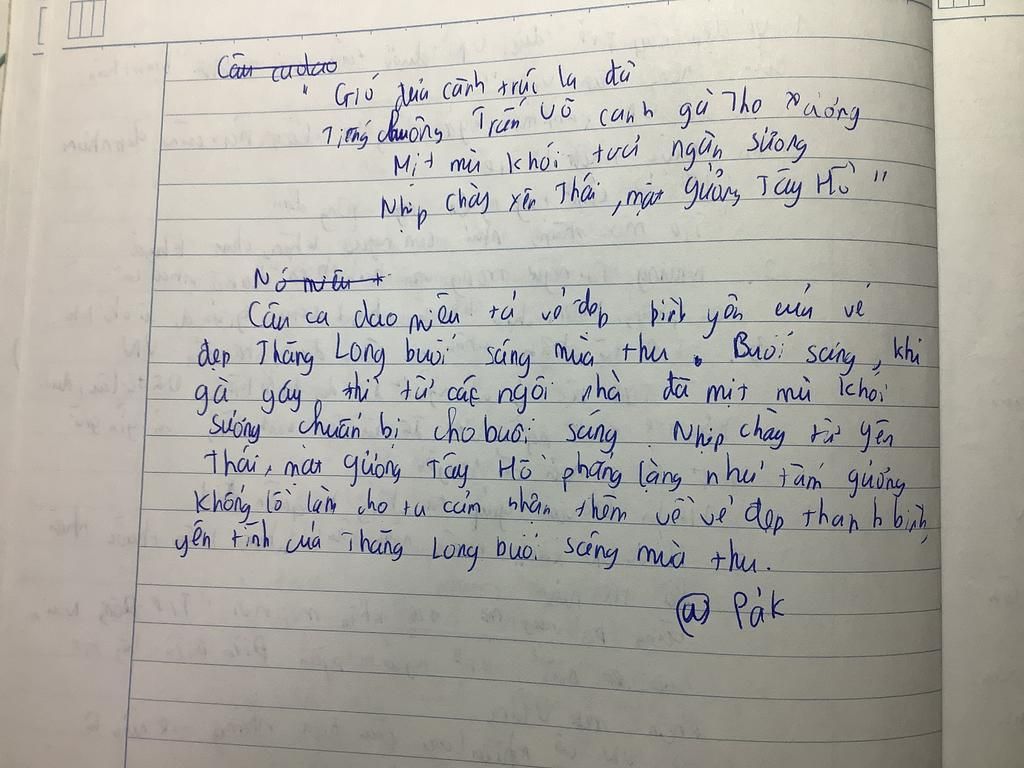 Câu ca dao
" Gió đưa cành trúc la đà
Tiếng chuông Trấn Võ canh gà Thọ Xương
Mịt mù khói toả ngàn sương
Nhịp chày Yên Thái, mặt gương Tây Hồ "
Câu ca dao miêu tả vẻ đẹp bình yên của vẻ
đẹp Thăng Long buổi sáng mùa thu. Buổi sáng, khi
gà gáy, thì từ các ngôi nhà đã mịt mù khói
sương chuẩn bị cho buổi sáng. Nhịp chày từ Yên
Thái, mặt gương Tây Hồ phẳng lặng như tấm gương
khổng lồ làm cho ta cảm nhận thêm về vẻ đẹp thanh bình,
yên tĩnh của Thăng Long buổi sáng mùa thu.
@ Pák